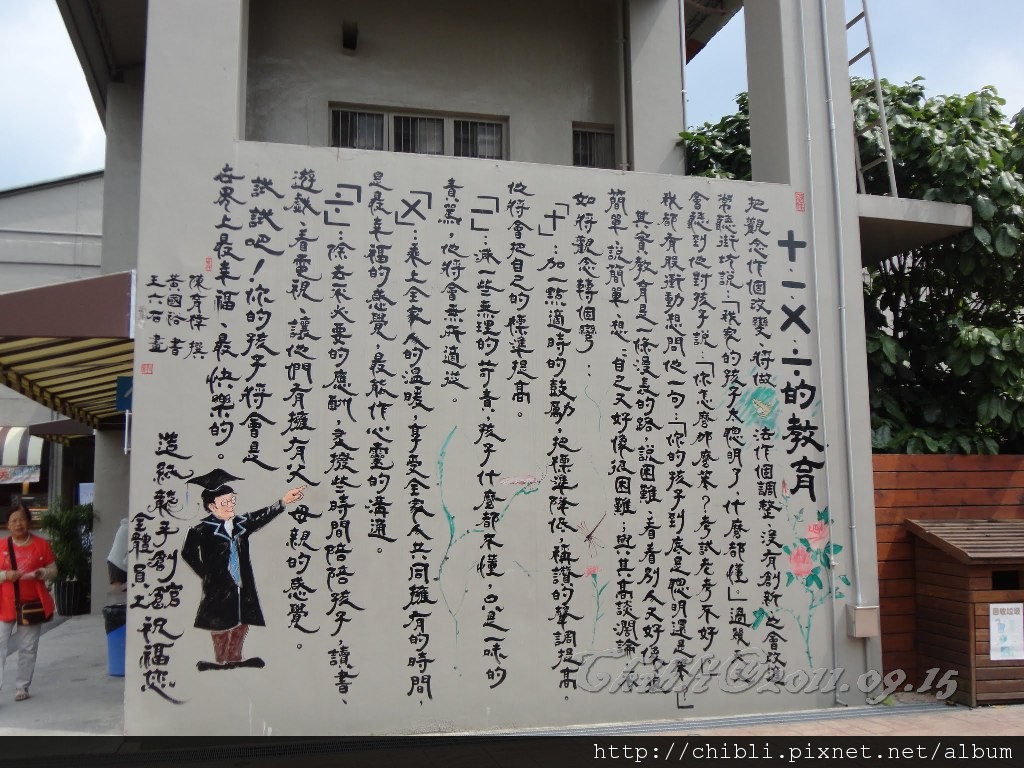 十·一·×·÷的教育
把觀念作個改變、好做
活作個調整、沒有創新、
常聽街坊說:「我家的孩子太聰明了,什麼都懂」過幾天又
會聽到他對孩子說:「你怎麼那麼笨?考試老考不好
我都有股衝動想問他一句:「你的孩子到底是聰明還是笨?」
其實教育是一條漫長的路,說困難,看看別人又好像很
簡單、說簡單、想一想自己又好像很困難;與其高談濶論、不
如將觀念轉個彎:
「+」:加一點適時的鼓勵,把標準降低,稱讚的聲調提高。
他將會把自己的標準提高。
「一」:減一些無理的苛責,孩子什麼都不懂,只是一味的
責罵,他將會無所適從。
「×」:乘上全家人的溫暖,享受全家人共同擁有的時間,
是最幸福的感覺,最能作心靈的溝通。
「÷」:除去不必要的應酬,交撥些時間陪陪孩子,讀書、
遊戲、看電視、讓他們有擁有父、母親的感覺。
試試吧!你的孩子將會是
世界上最幸福、最快樂的。
陳育偉 撰
黃國洽 書
王六石 畫
造紙龍手創館
全體員工
祝福您
Chibli@2011.09.15
http://chibli.pixnet.net/album